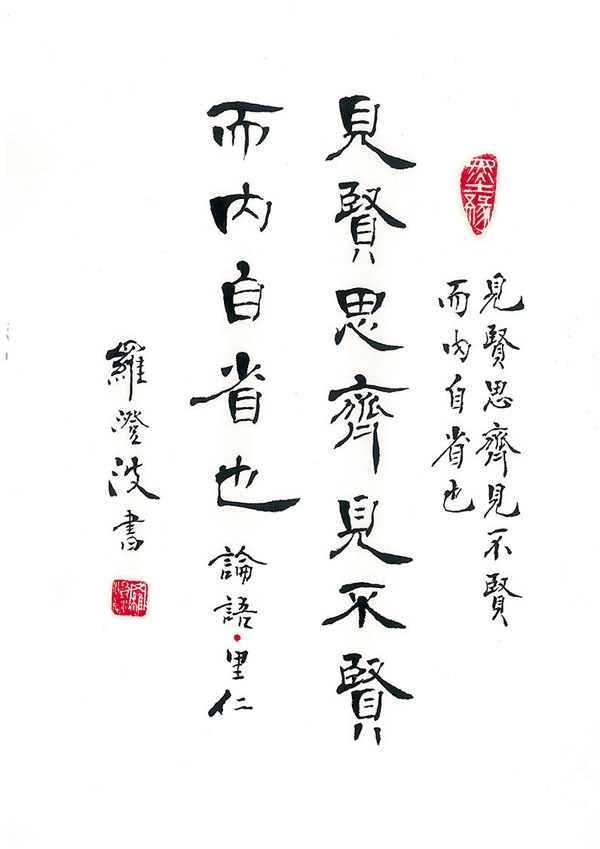 見賢思齊見不賢
而内自省也
見賢思齊見不賢
而内自省也 論語·里仁
羅澄波書